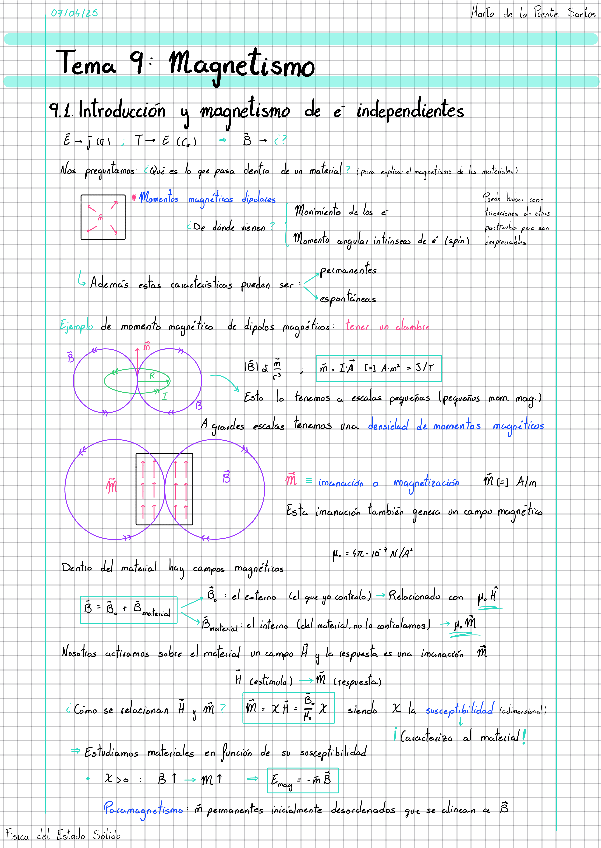 07/04/25
Marta de la Puente Santos
Tema 9: Magnetismo
9.1. Introducción y magnetismo de e⁻ independientes
Nos preguntamos ¿Qué es lo que pasa dentro de un material? (para explicar el magnetismo de los materiales)
• Momentos magnéticos dipolares
¿De dónde vienen?
Movimiento de los e⁻
Momento angular intrínseco de e⁻ (spin)
Además estas características pueden ser:
permanentes
espontáneas
Ejemplo de momento magnético de dipolos magnéticos: tener un alambre
B⃗
m⃗
R
I
B⃗
|B⃗| α m⃗/r³ , m⃗ = I·A⃗ [=] A·m² = J/T
Esto lo tenemos a escalas pequeñas (pequeños mom. mag.)
A grandes escalas tenemos una densidad de momentos magnéticos
M⃗
B⃗
M⃗ ≡ imanación o magnetización M⃗ [=] A/m
Esta imanación también genera un campo magnético
μ₀ = 4π·10⁻⁷ N/A²
Dentro del material hay campos magnéticos
B⃗ = B⃗₀ + B⃗material
B⃗₀ : el externo (el que yo controlo) → Relacionado con μ₀ H⃗
B⃗material : el interno (del material, no lo controlamos) → μ₀ M⃗
Nosotros activamos sobre el material un campo H⃗ y la respuesta es una imanación M⃗
H⃗ (estímulo) → M⃗ (respuesta)
¿Cómo se relacionan H⃗ y M⃗? M⃗ = χ H⃗ = B⃗₀/μ₀ χ siendo χ la susceptibilidad (adimensional)
¡Caracteriza al material!
⇒ Estudiamos materiales en función de su susceptibilidad
• χ>0 : B↑ → M↑ ⇒ Emag = -m⃗ B⃗
Paramagnetismo: m⃗ permanentes inicialmente desordenados que se alinean a B⃗
Física del Estado Sólido